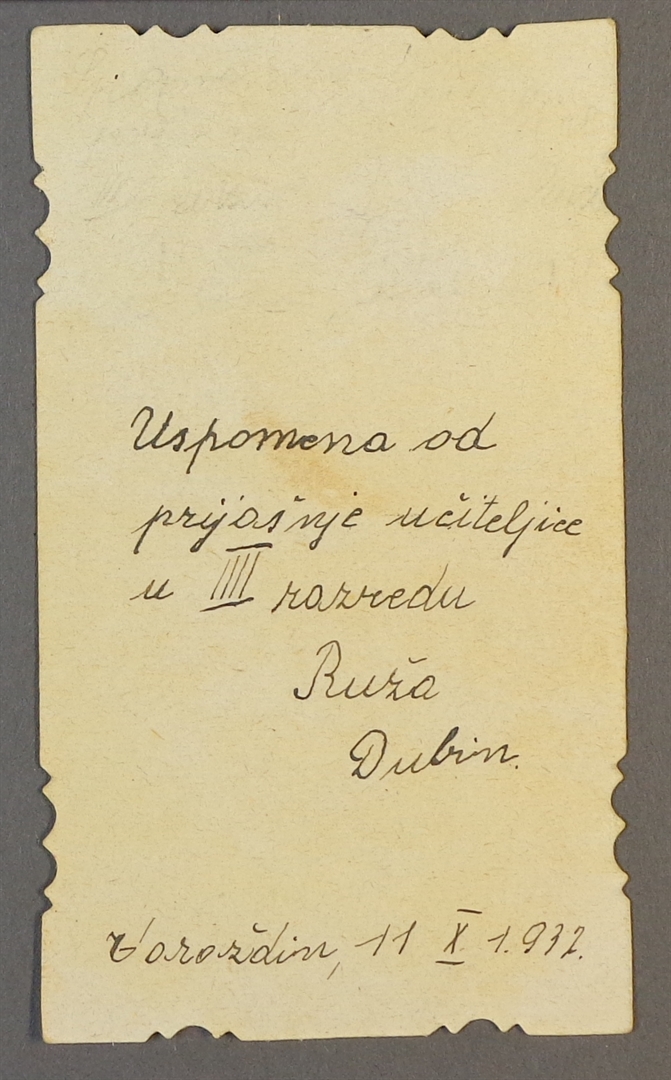 Uspomena od
prijašnje učiteljice
u IIII razredu
Ruža
Dubin.
Varaždin, 11 X 1.932.